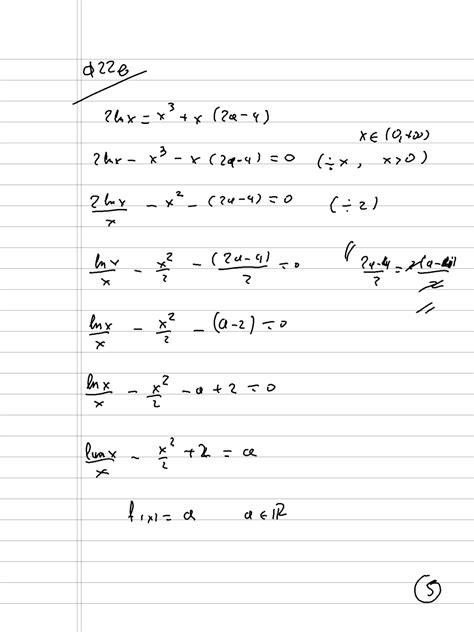 φ22β
2lnx = x³ + x (2α-4)
x ∈ (0, +∞)
2lnx - x³ - x (2α-4) = 0 (÷x, x>0)
2lnx/x - x² - (2α-4) = 0 (÷2)
lnx/x - x²/2 - (2α-4)/2 = 0
lnx/x - x²/2 - (α-2) = 0
lnx/x - x²/2 - α + 2 = 0
lnx/x - x²/2 + 2 = α
f(x) = α α ∈ ℝ
5